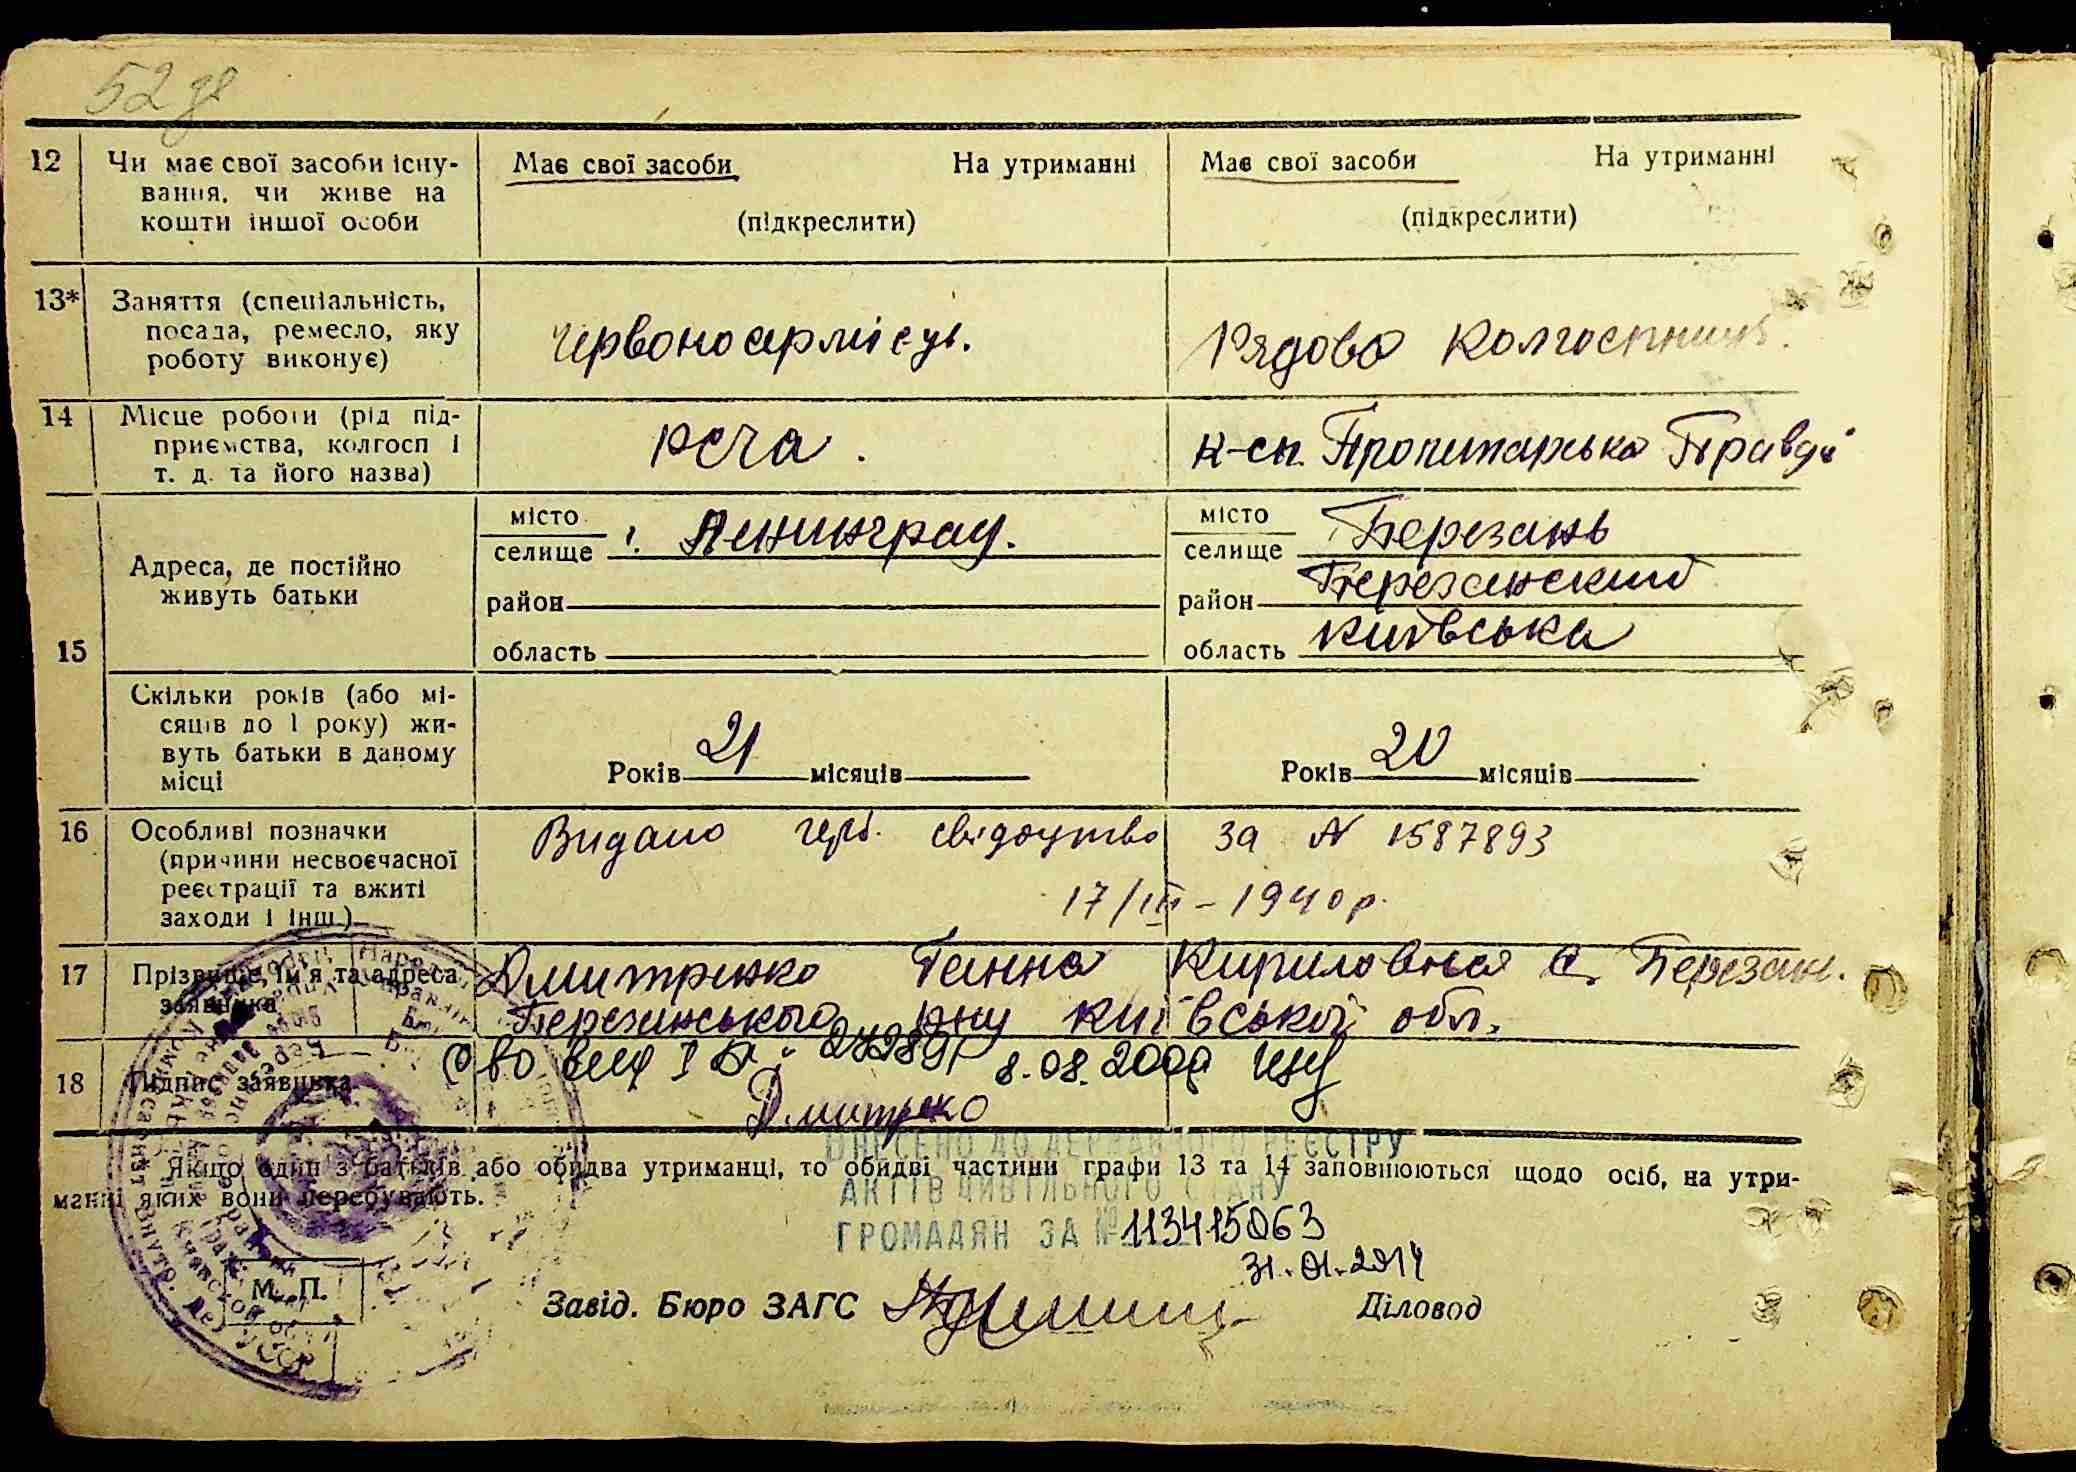 52
12 Чи має свої засоби існу-
вання, чи живе на
кошти іншої особи
Має свої засоби На утриманні
(підкреслити)
Має свої засоби На утриманні
(підкреслити)
13* Заняття (спеціальність,
посада, ремесло, яку
роботу виконує)
Червоноармієць.
Рядова колгоспниця.
14 Місце роботи (рід під-
приємства, колгосп і
т. д. та його назва)
РСЧА.
к-сп. Пролитарська Правда
15 Адреса, де постійно
живуть батьки
місто
селище г. Ленинград.
район
область
місто
селище Березань
район Березанский
область Київська
Скільки років (або мі-
сяців до 1 року) жи-
вуть батьки в даному
місці
Років 21 місяців
Років 20 місяців
16 Особливі позначки
(причини несвоєчасної
реєстрації та вжиті
заходи і інш.)
Видано герб. свідоцтво за № 1587893
17/III-1940р.
17 Прізвище, ім'я та адреса
заявника
Дмитренко Ганна Кириловна с. Березань.
Березанського р-ну Київської обл.
18 Підпис заявника
8.08.2000
Дмитренко
Якщо один з батьків або обидва утриманці, то обидві частини графи 13 та 14 заповнюються щодо осіб, на утри-
манні яких вони перебувають.
ВНЕСЕНО ДО ДЕРЖАВНОГО РЕЄСТРУ
АКТІВ ЦИВІЛЬНОГО СТАНУ
ГРОМАДЯН ЗА № 113415063
31.01.2014
М. П.
Завід. Бюро ЗАГС Діловод